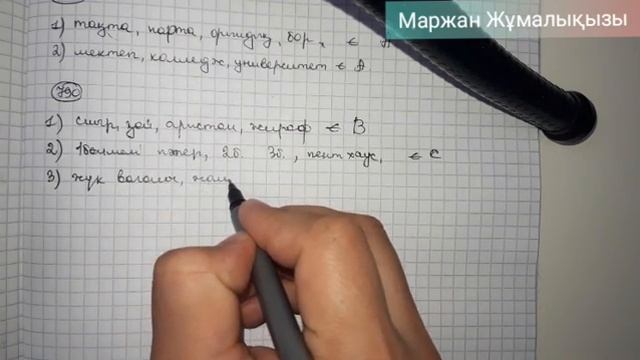 Маржан Жұмалықызы
1) тақта, парта, оқушы, бор, ∈ A
2) мектеп, колледж, университет ∈ A
790
1) сиыр, қой, арыстан, жираф ∈ B
2) 1бөлмелі пәтер, 2б. 3б., пентхаус, ∈ C
3) жүк вагоны, жолу